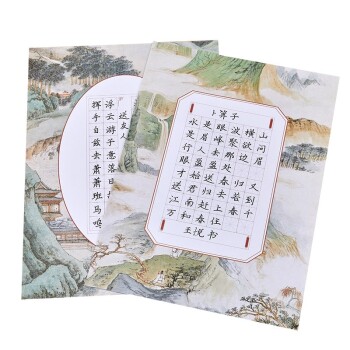 送友
浮云游子意落日
挥手自兹去萧萧班马鸣
卜算子
水是眼波横 山
是眉峰聚 欲问
行人去那边 眉
眼盈盈处
才始送春归 又
送君归去 若到
江南赶上春 千
万和春住
王悦书